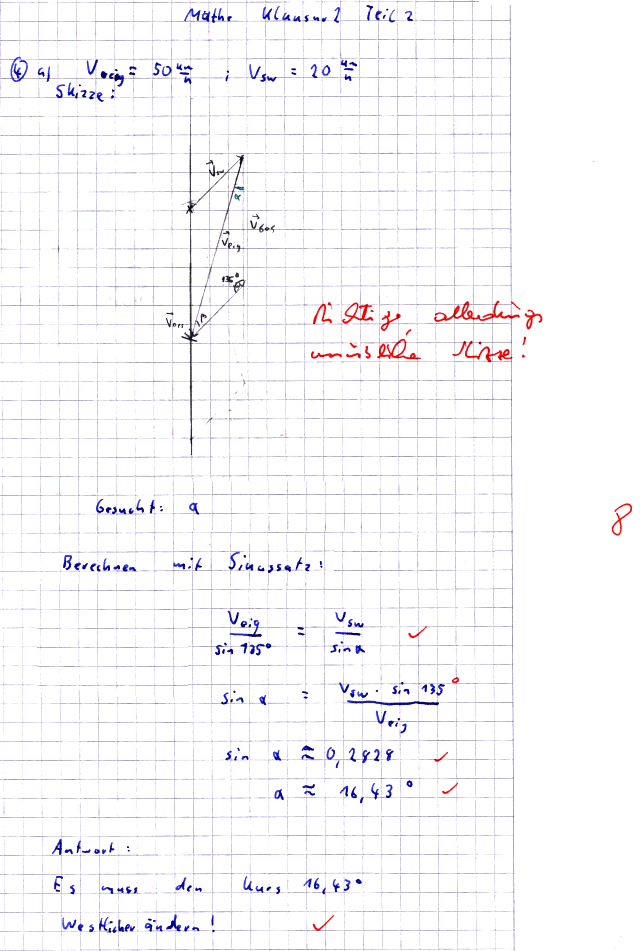 Mathe Klausur 2 Teil 2
④ a) V_eig = 50 km/h ; V_sw = 20 km/h
Skizze:
V_sw
α
V_Ges
V_eig
135°
β
Richtige, allerdings
Skizze!
Gesucht: α
8
Berechnen mit Sinussatz:
V_eig / sin 135° = V_sw / sin α ✓
sin α = V_sw · sin 135° / V_eig
sin α ≈ 0,2828 ✓
α ≈ 16,43° ✓
Antwort:
Es muss den Kurs 16,43°
Westlicher ändern! ✓